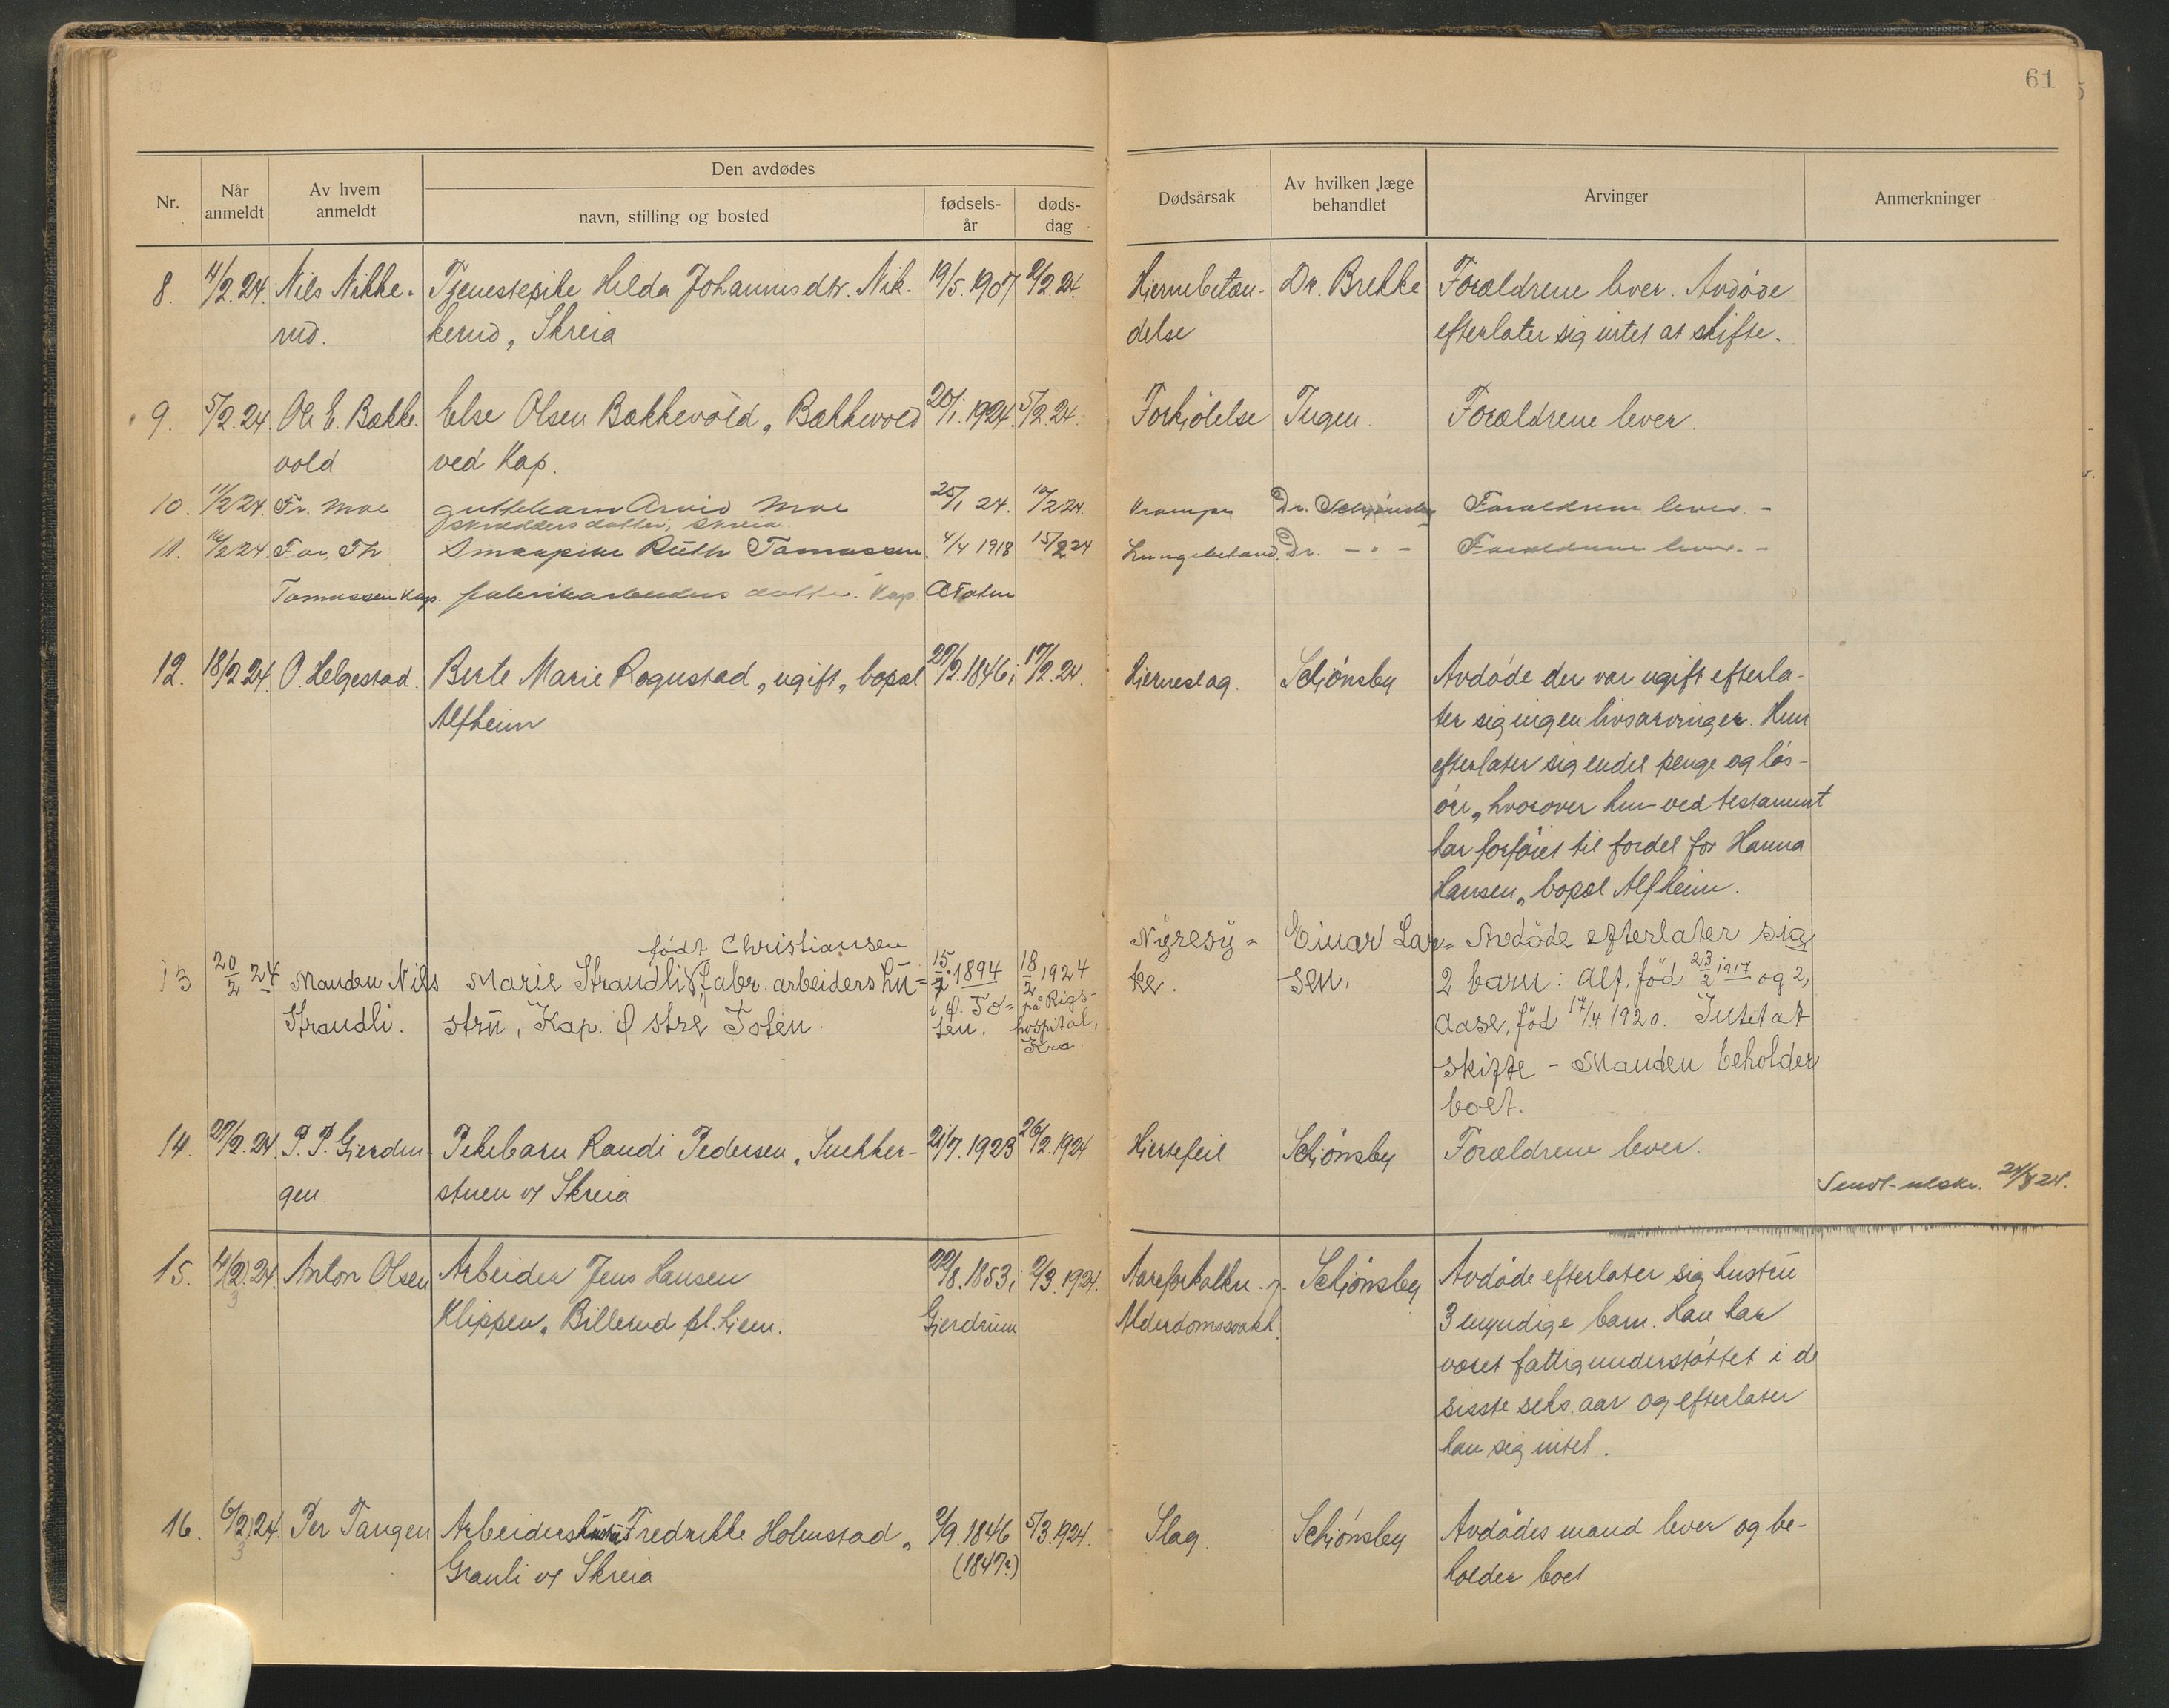 61
Nr.
Når anmeldt
Av hvem anmeldt
Den avdødes
navn, stilling og bosted
fødsels-år
døds-dag
Dødsårsak
Av hvilken læge behandlet
Arvinger
Anmerkninger
8. 4/2.24. Nils Nikke- Tjenestepike Hilda Johannesdtr. Nik- 19/5.1907 2/2.24. Hjernebetæn- Dr. Brekke Forældrene lever. Avdøde
rud. kerud, Skreia delse efterlater sig intet at skifte.
9. 5/2.24. Ole E. Bække- Else Olsen Bækkevold, Bækkevold 20/1.1924. 5/2.24. Forkjølelse Ingen. Forældrene lever.
vold ved Kap.
10. 11/2 24. Fr. Moe guttebarn Arvid Moe 25/1 24. 10/2 24. Krampe Dr. Schjønsby Foreldrene lever. -
skrædders datter, Skreia.
11. 16/2 24. Far, Th. Småpike Ruth Tomassen. 4/4 1918 15/2 24 Lungebetænd. Dr. - " - Foreldrene lever. -
Tomassen Kap. fabrikarbeiders datter. Kap. Ø Toten
12. 18/2 24. O. Helgestad. Berte Marie Rognstad, ugift, bopæl 27/2.1846 i 17/2.24. Hjerneslag. Schjønsby Avdøde der var ugift efterla-
Alfheim ter sig ingen livsarvinger. Hun
efterlater sig endel penge og løs-
øre, hvorover hun ved testament
har forføiet til fordel for Hanna
Hansen, bopæl Alfheim.
født Christiansen
13 20/2 24 Manden Nils Marie Strandli, fabr. arbeiders hu- 15/7.1894 18/2 1924 Nyresy- Einar Lar- Avdøde efterlater sig
Strandli. stru, Kap. Østre Toten. i Ø. To-ten. på Rigs-hospital, Kra. ke. sen. 2 barn: Alf, fød 23/2 1917 og 2,
Aase, fød 17/4 1920. Intet at
skifte - Manden beholder
boet.
14. 27/2.24. P. P. Gjerdin- Pikebarn Randi Pedersen, Snekker- 21/7.1923 26/2.1924 Hjertefeil Schjønsby Forældrene lever.
gen. stuen v/ Skreia
Sendt utskr. 24/3 24.
15. 4/(2).24. Anton Olsen Arbeider Jens Hansen 22/8.1853 i 2/3.1924. Aareforkalkn. og Schjønsby Avdøde efterlater sig hustru
3
Klippen, Billerud pl. hjem. Gjerdrum Alderdomssvakh. 3 myndige barn. Han har
været fattigunderstøttet i de
sisste seks aar og efterlater
han sig intet.
16. 6/(2) 24. Per Tangen Arbeiders hustru Fredrikke Holmstad, 2/9.1846 5/3.1924. Slag. Schjønsby Avdødes mand lever og be-
3
Granli v/ Skreia (1847?) holder boet